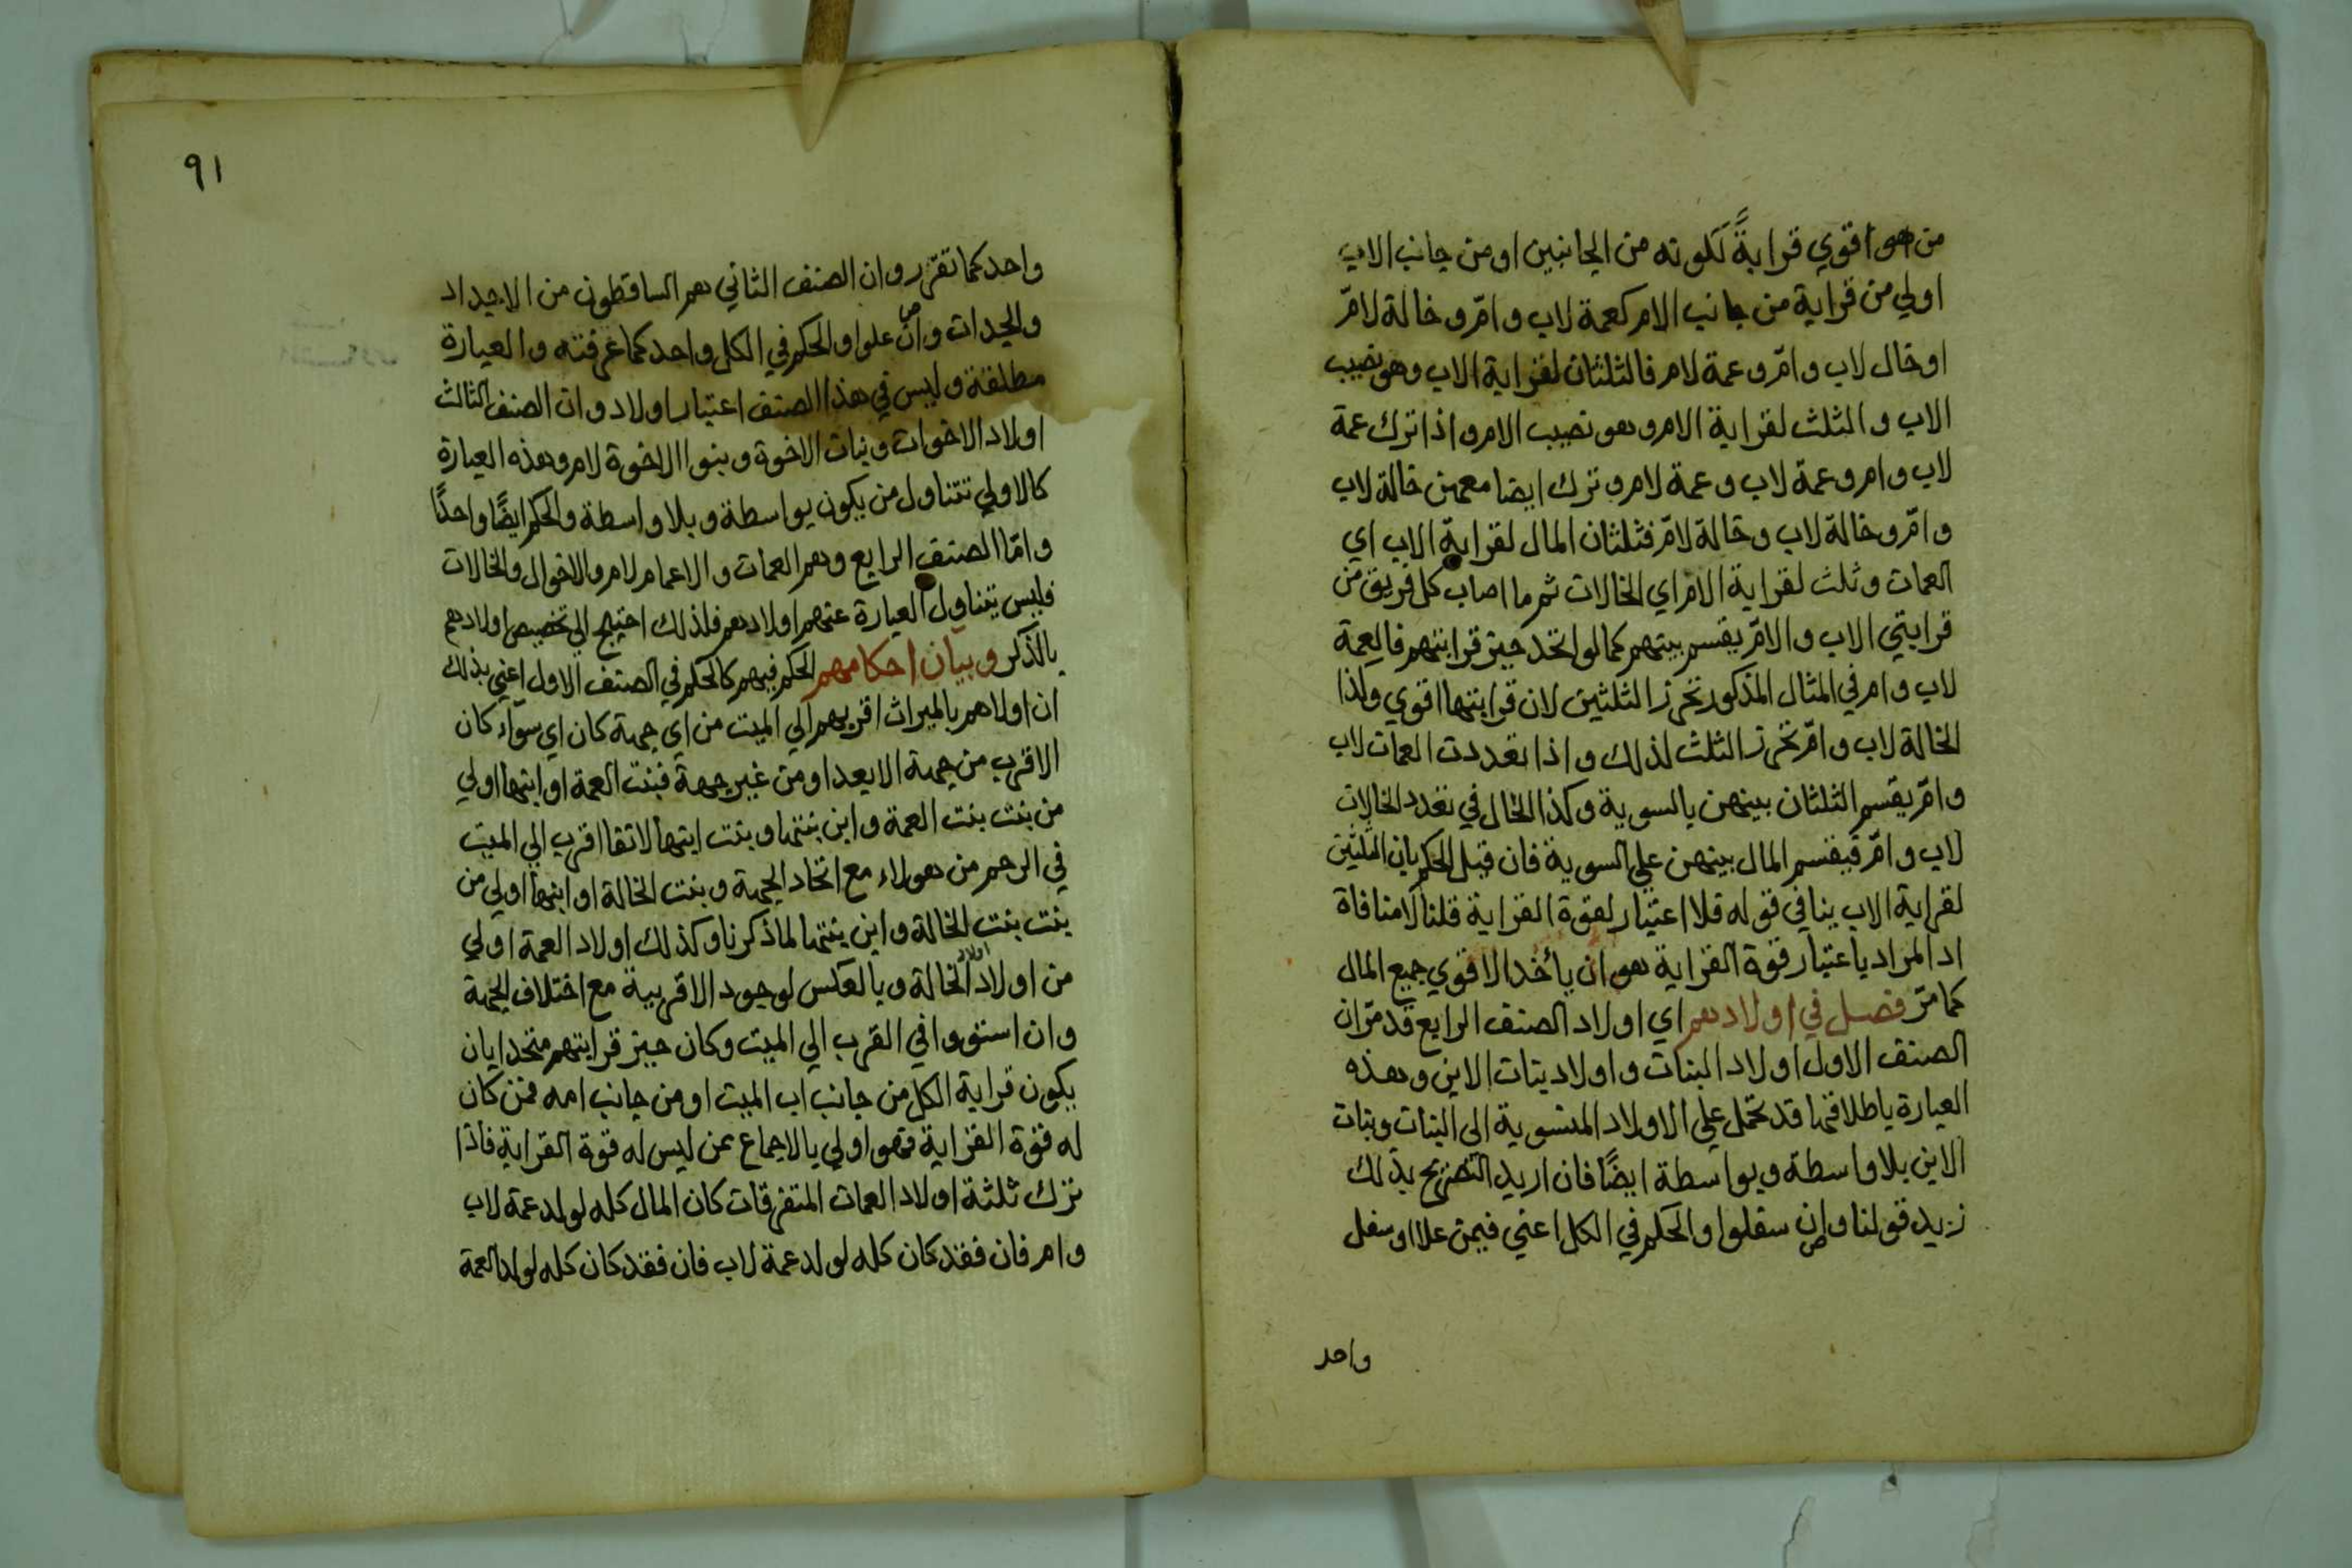 من هو اقوي قرابةً لكونه من الجانبين او من جانب الاب
اولي من قرابة من جانب الام كعمة لاب وامّ وخالة لامّ
او خال لاب وامّ وعمة لام فالثلثان لقرابة الاب وهو نصيب
الاب والثلث لقرابة الام وهو نصيب الام واذا ترك عمة
لاب وام وعمة لاب وعمة لام وترك ايضا معهن خالة لاب
وامّ وخالة لاب وخالة لامّ فثلثان المال لقرابة الاب اي
العمات وثلث لقرابة الامّ اي الخالات ثم ما اصاب كل فريق من
قرابتي الاب والامّ يقسم بينهم كما لو اتحد حيز قرابتهم فالعمة
لاب وام في المثال المذكور تحرز الثلثين لان قرابتها اقوي وكذا
الخالة لاب وامّ تحرز الثلث لذلك واذا تعددت العمات لاب
وامّ يقسم الثلثان بينهن بالسوية وكذا الحال في تعدد الخالات
لاب وامّ فيقسم المال بينهن علي السوية فان قيل الحكم بان الثلثين
لقرابة الاب ينافي قوله فلا اعتبار لقوة القرابة قلنا لا منافاة
اد المراد باعتبار قوة القرابة هو ان يأخذ الاقوي جميع المال
كما مرّ فصل في اولادهم اي اولاد الصنف الرابع قد مرّ ان
الصنف الاول اولاد البنات واولاد بنات الابن وهذه
العبارة باطلاقها قد تحمل علي الاولاد المنسوبة الى البنات وبنات
الابن بلا واسطة وبواسطة ايضًا فان اريد التصريح بذلك
زيد قولنا وان سفلوا والحكم في الكل اعني فيمن علا او سفل
واحد
٩١
واحد كما تقرر وان الصنف الثاني هم الساقطون من الاجداد
والجدات وان علوا والحكم في الكل واحد كما عرفته والعبارة
مطلقة وليس في هذا الصنف اعتبار اولاد وان الصنف الثالث
اولاد الاخوات وبنات الاخوة وبنوا الاخوة لام وهذه العبارة
كالاولي تتناول من يكون بواسطة وبلا واسطة والحكم ايضًا واحدًا
وامّا الصنف الرابع وهم العمات والاعمام لام والاخوال والخالات
فليس يتناول العبارة عنهم اولادهم فلذلك احتيج الي تخصيص اولادهم
بالذكر وبيان احكامهم الحكم فيهم كالحكم في الصنف الاول اعني بذلك
ان اولاهم بالميراث اقربهم الي الميت من اي جهة كان اي سوآء كان
الاقرب من جهة الابعد او من غير جهة فبنت العمة او ابنها اولي
من بنت بنت العمة وابن بنتها وبنت ابنها لانها اقرب الي الميت
في الرحم من هولاء مع اتحاد الجهة وبنت الخالة او ابنها اولي من
بنت بنت الخالة وابن بنتها لما ذكرنا وكذلك اولاد العمة اولي
من اولاد اولاد الخالة وبالعكس لوجود الاقربية مع اختلاف الجهة
وان استووا في القرب الي الميت وكان حيز قرابتهم متحدا بان
يكون قرابة الكل من جانب اب الميت او من جانب امه فمن كان
له قوة القرابة فهو اولي بالاجماع عن ليس له قوة القرابة فاذا
ترك ثلثة اولاد العمات المتفرقات كان المال كله لولد عمة لاب
وام فان فقد كان كله لولد عمة لاب فان فقد كان كله لولد العمة